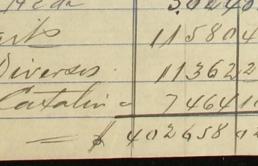 5.0240
115804
Diverses. 113622
Catalin = 746410
= $ 40265802